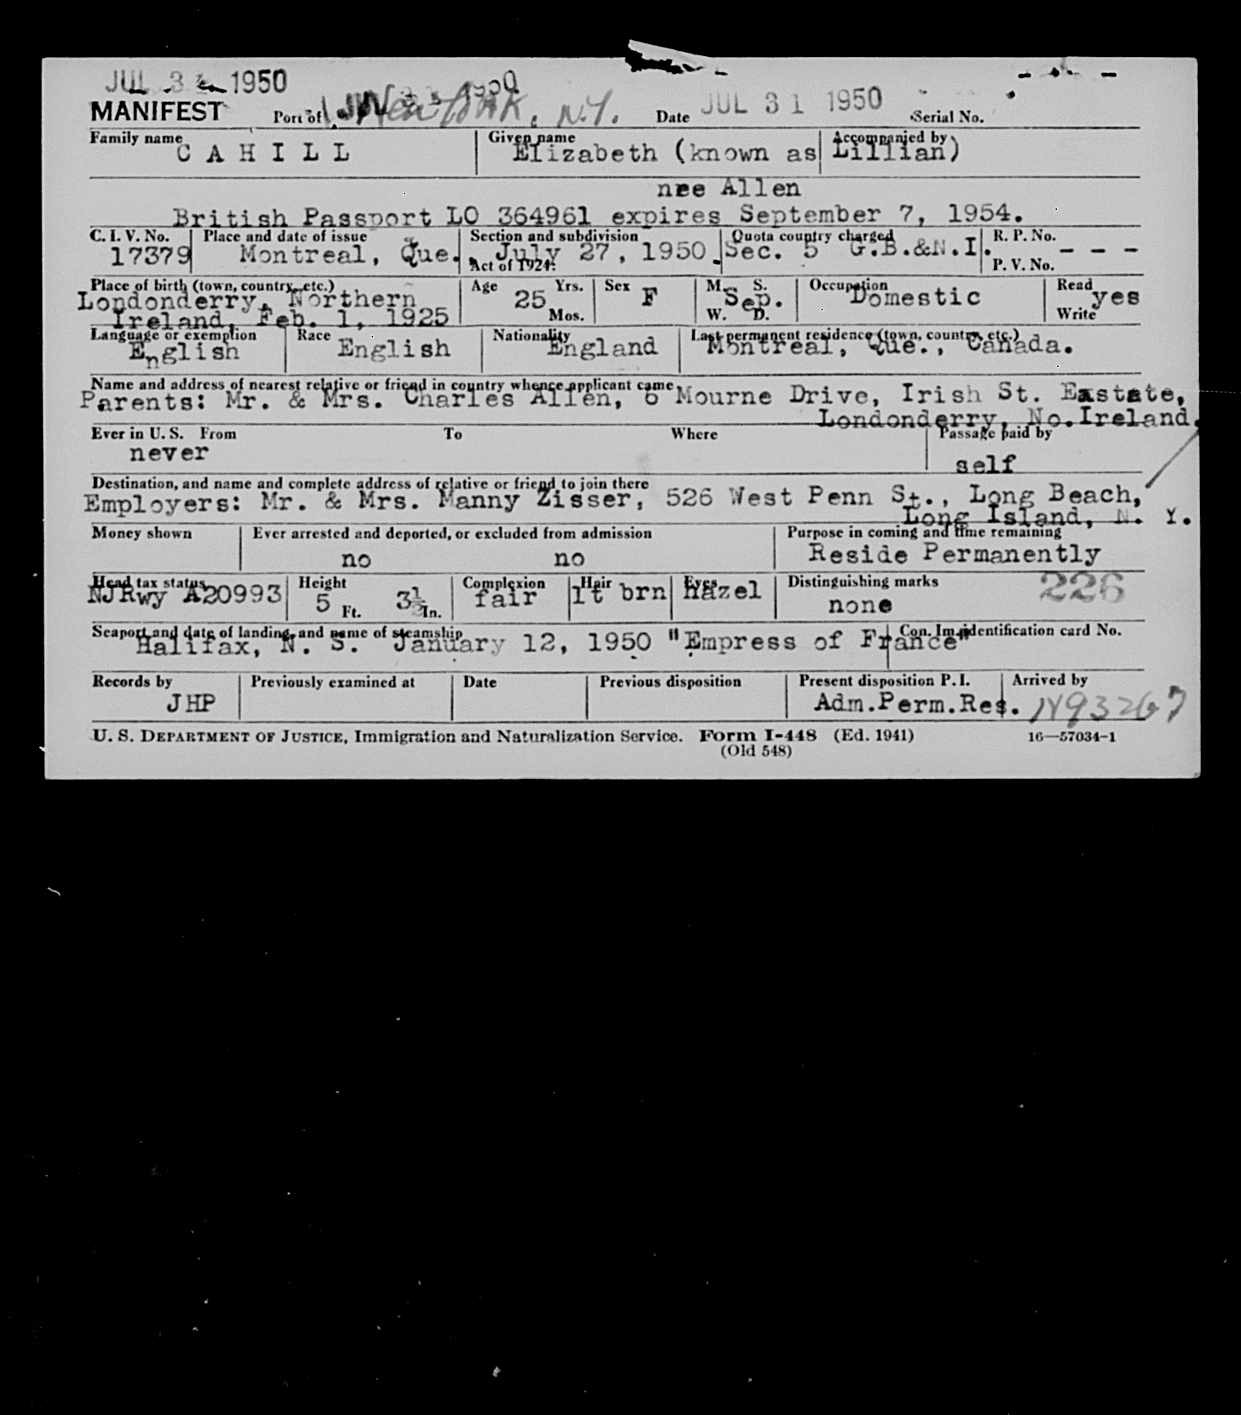 JUL 31 1950
MANIFEST Port of New York, N.Y. Date JUL 31 1950 Serial No.
Family name Given name Accompanied by
CAHILL Elizabeth (known as Lillian)
nee Allen
British Passport LO 364961 expires September 7, 1954.
C. I. V. No. Place and date of issue Section and subdivision Quota country charged R. P. No.
17379 Montreal, Que., July 27, 1950. Sec. 5 G.B.&N.I. - - -
Act of 1924: P. V. No.
Place of birth (town, country, etc.) Age Yrs. Sex M. S. Occupation Read
Londonderry, Northern 25 F Sep. Domestic yes
Ireland, Feb. 1, 1925 Mos. W. D. Write
Language or exemption Race Nationality Last permanent residence (town, country, etc.)
English English England Montreal, Que., Canada.
Name and address of nearest relative or friend in country whence applicant came
Parents: Mr. & Mrs. Charles Allen, 6 Mourne Drive, Irish St. Eastate,
Londonderry, No.Ireland.
Ever in U. S. From To Where Passage paid by
never self
Destination, and name and complete address of relative or friend to join there
Employers: Mr. & Mrs. Manny Zisser, 526 West Penn St., Long Beach,
Long Island, N. Y.
Money shown Ever arrested and deported, or excluded from admission Purpose in coming and time remaining
no no Reside Permanently
Head tax status Height Complexion Hair Eyes Distinguishing marks 226
NJRwy A20993 5 Ft. 3½ In. fair lt brn Hazel none
Seaport and date of landing, and name of steamship Con. Im. identification card No.
Halifax, N. S. January 12, 1950 "Empress of France"
Records by Previously examined at Date Previous disposition Present disposition P. I. Arrived by
JHP Adm.Perm.Res. N93267
U. S. DEPARTMENT OF JUSTICE, Immigration and Naturalization Service. Form I-448 (Ed. 1941) 16—57034-1
(Old 548)